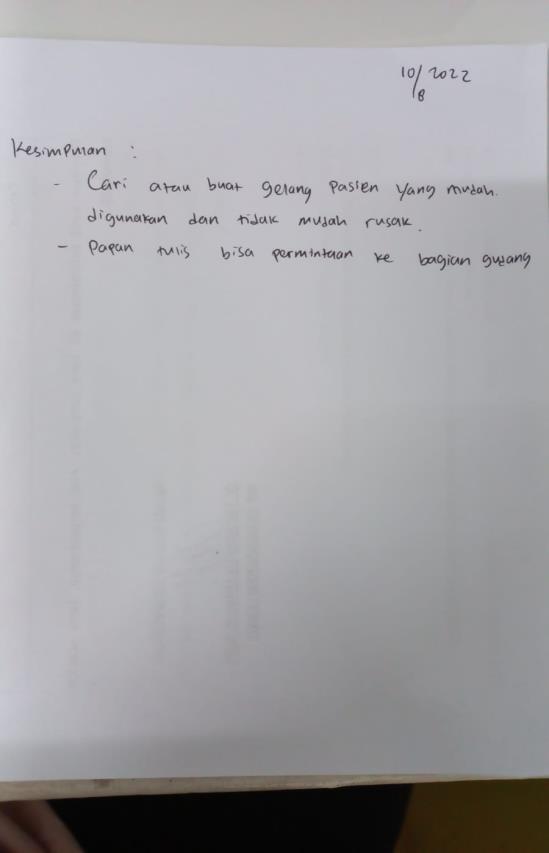 10/8 2022
Kesimpulan :
- Cari atau buat gelang pasien yang mudah.
digunakan dan tidak mudah rusak.
- Papan tulis bisa permintaan ke bagian gudang